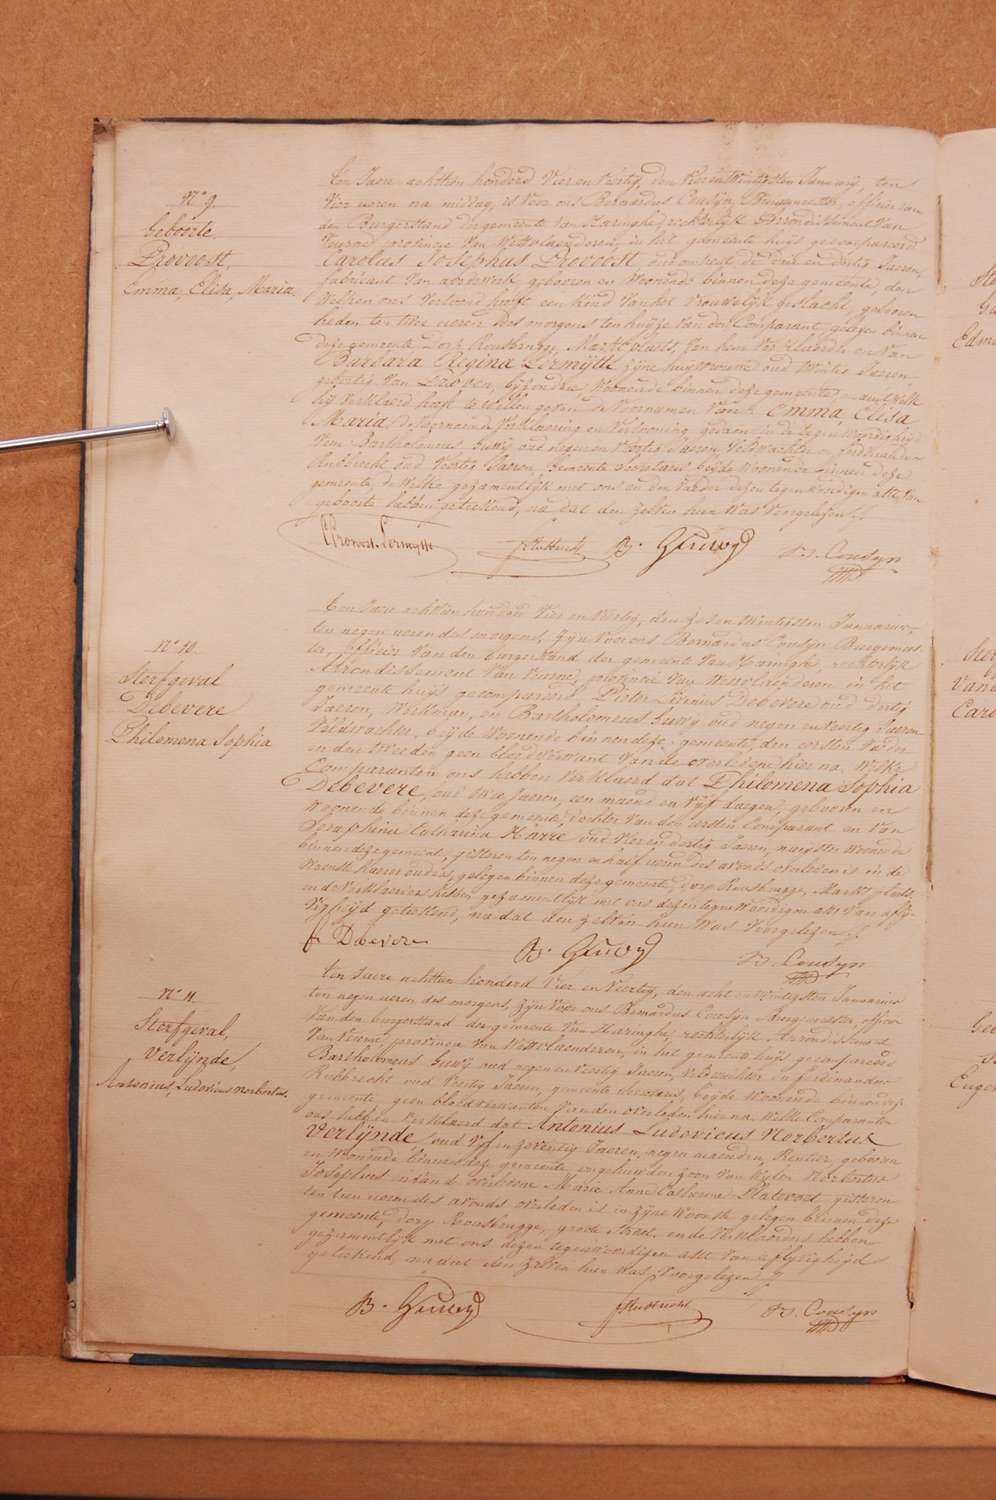 N° 9
Geboorte
Provoost,
Emma, Elisa, Maria
Ten Jaere achttien honderd Vier en Veertig, den Vierentwintigsten January, ten
Vier ueren na middag, is Voor ons Bernardus Cousyn, Burgemeester, officier van
den Burgerstand der gemeente Van Haringhe, rechterlijk Arrondissement Van
Veurne provincie Van Westvlaenderen, in het gemeente huijs gecompareerd
Carolus Josephus Provoost oud en dertig Jaeren,
fabricant Van geboren en Woonende binnen deze gemeente, den
Welken ons Vertoond heeft een kind Van het Vrouwelijk geslacht, geboren
heden ten twee ueren des morgens ten huijze Van den Comparant, gelegen binnen
deze gemeente dorp Rousbrugge, Marktplaets, Van hem Verklaerder en Van
Barbara Regina Lermijtte zijne huysvrouwe oud Veertig Jaeren
geboortig Van Proven, bij ouders Woonende binnen deze gemeente, aen Welk
hij Verklaerd heeft te Willen geven de Voornamen Van Emma, Elisa
Maria, deze Verklaering en Vertooning gedaen in de tegenwoordigheijd
Van Bartholomeus Geuwij oud negen en Veertig Jaeren, Veldwachter en ferdinandus
Rubbrecht oud Veertig Jaeren, Gemeente Secretaris beijde Woonende binnen deze
gemeente, de Welke gezamentlijk met ons en den Vader dezen tegenwoordigen akte Van
geboorte hebben geteekend, na dat den zelven hun Was Voorgelezen ./.
Provoost-Lermijtte
f Rubbrecht
B. Geuwy
B. Cousyn
N° 10
Sterfgeval
Debevere
Philomena Sophia
Ten Jaere achttien honderd Vier en Veertig, den zes en twintigsten Januarius
ten negen ueren des morgens, Zijn Voor ons Bernardus Cousijn Burgemees-
ter, officier Van den burgerstand der gemeente Van Haringhe, rechterlijk
Arrondissement Van Veurne, provintie Van Westvlaenderen in het
gemeente huijs gecompareerd Pieter Livinus Debevere oud dertig
Jaeren, Werkman, en Bartholomeus Geuwy oud negen en Veertig Jaeren
Veldwachter, beijde Woonende binnen deze gemeente, den eersten Vader
en den tweeden geen bloedverwant Van de overledene hier na. Welke
Comparanten ons hebben Verklaerd dat Philomena Sophia
Debevere, oud twee Jaeren, een maend en Vijf daegen, geboren en
Woonende binnen deze gemeente, dochter Van den eersten Comparant en Van
Seraphine Catharina Harre oud Vier en dertig Jaeren, Woonende
binnen deze gemeente, gisteren ten negen en half ueren des avonds overleden is in de
Woonste haerer ouders, gelegen binnen deze gemeente, dorp Rousbrugge, Markt plaets,
en de Verklaerders hebben gezamentlijk met ons dezen tegenwoordigen akte Van afly-
Vigheijd geteekend, na dat den zelven hun Was Voorgelezen ./.
P Debevere
B. Geuwy
B. Cousyn
N° 11
Sterfgeval,
Verlijnde,
Antonius, Ludovicus norbertus.
Ten Jaere achttien honderd Vier en Veertig, den acht en twintigsten Januarius
ten negen ueren des morgens, Zijn Voor ons Bernardus Couslyn Burgemeester, officier
Van den burgerstand der gemeente Van Haringhe, rechterlijk Arrondissement
Van Veurne, provincie Van Westvlaenderen, in het gemeente huijs gecompareerd
Bartholomeus Geuwij oud negen en Veertig Jaeren, Veldwachter en ferdinandus
Rubbrecht oud Veertig Jaeren, gemeente Secretaris, beyde Woonende binnen deze
gemeente geen bloedverwanten Van den overleden hier na. Welke Comparanten
ons hebben Verklaerd dat Antonius Ludovicus Norbertus
Verlijnde, oud Vijf en zeventig Jaeren, negen maenden, Rentier, geboren
en Woonende binnen deze gemeente, ongehuwden zoon Van Norbertus
Josephus en Van de Marie Anne Catherine Platevoet, gisteren
ten tien ueren des avonds overleden is in zijne Woonste gelegen binnen deze
gemeente, dorp Rousbrugge, groote Straet, en de Verklaerders hebben
gezamentlijk met ons dezen tegenwoordigen akte Van aflyvigheijd
geteekend, na dat den zelven hun Was Voorgelezen ./.
B. Geuwy
f Rubbrecht
B. Couslyn
Edm
Vand
Caro
Eugen